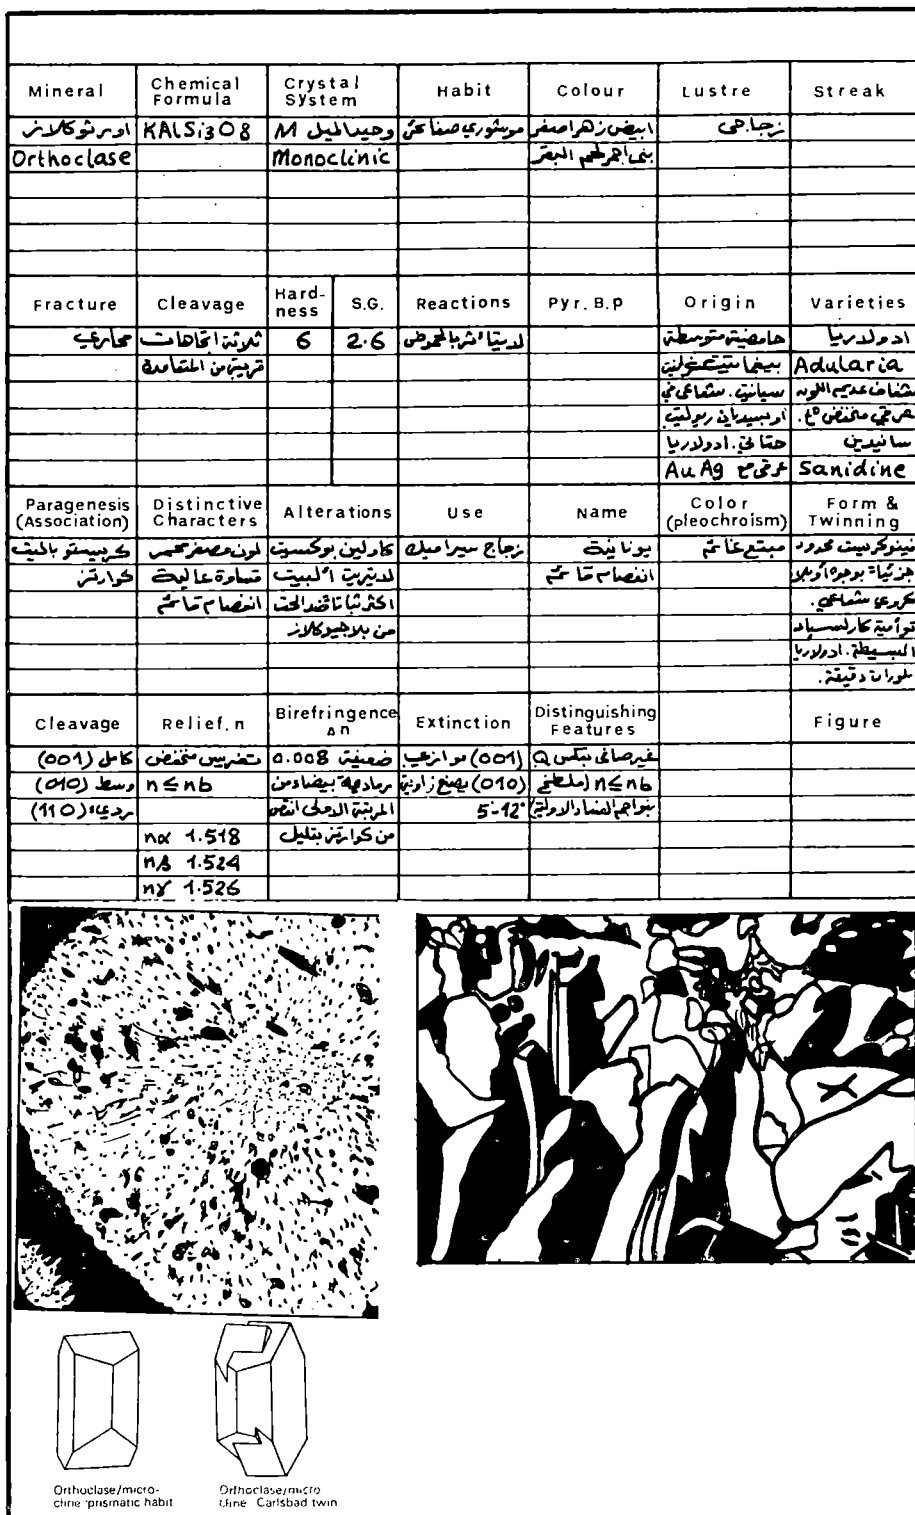 Mineral Chemical Formula Crystal System Habit Colour Lustre Streak
اورثوكلاز KAlSi3O8 وحيد الميل M موشوري صفائحي ابيض زهر اصفر زجاجي
Orthoclase Monoclinic بني احمر لحم البقر
Fracture Cleavage Hard-ness S.G. Reactions Pyr. B.p Origin Varieties
محاري ثلاثة اتجاهات 6 2.6 لا يتأثر بالحموض حامضية متوسطة ادولاريا
قريبة من المتعامدة Adularia
سيانيت شفاف عديم اللون
سانيدين
ادولاريا
Au Ag عرقي مع Sanidine
Paragenesis (Association) Distinctive Characters Alterations Use Name Color (pleochroism) Form & Twinning
كوارتز لون مصفر محمر كاولين بوكسيت زجاج سيراميك يونانية
قساوة عالية لاتيريت ألبيت انفصام قائم
انفصام قائم اكثر ثباتا ضد الحت جزئيا بوجوه أو بلا
من بلاجيوكلاز كروي شعاعي.
توأمية كارلسباد
البسيطة. ادولاريا
بلورات دقيقة.
Cleavage Relief. n Birefringence Δn Extinction Distinguishing Features Figure
كامل (001) تضريس منخفض ضعيفة 0.008 (001) موازي غير صافي بعكس Q
وسط (010) n ≤ nb (010) يصنع زاوية n ≤ nb
رديء (110) المرتبة الاولى 5-12°
nα 1.518 من كوارتز بقليل
nβ 1.524
nγ 1.526
Orthoclase/micro-
cline prismatic habit
Orthoclase/micro
cline Carlsbad twin